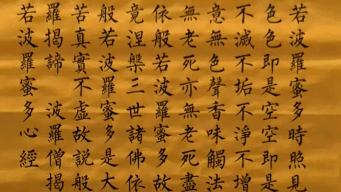 若波羅蜜多時照見
色色即是空空即是
不滅不垢不淨不增
意無色聲香味觸法
無老死亦無老死盡
依般若波羅蜜多故
竟涅槃三世諸佛依
般若波羅蜜多是大
苦真實不虛故說般
羅揭諦 波羅僧揭
若波羅蜜多心經